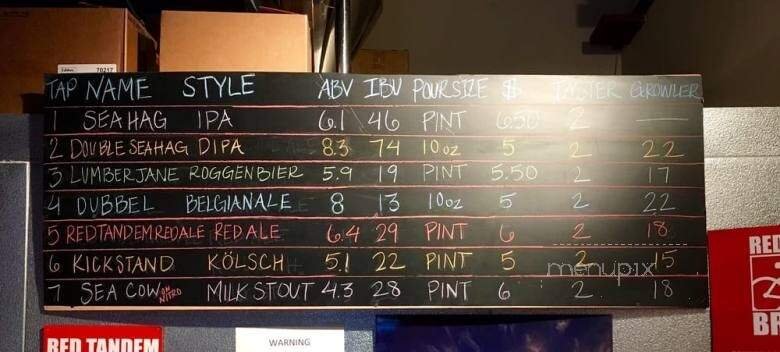 70217
TAP NAME STYLE ABV IBU POURSIZE $ TASTER GROWLER
1 SEAHAG IPA 6.1 46 PINT 6.50 2 —
2 DOUBLE SEAHAG DIPA 8.3 74 10oz 5 2 22
3 LUMBERJANE ROGGENBIER 5.9 19 PINT 5.50 2 17
4 DUBBEL BELGIANALE 8 13 10oz 5 2 22
5 REDTANDEMREDALE REDALE 6.4 29 PINT 6 2 18
6 KICKSTAND KÖLSCH 5.1 22 PINT 5 2 15
7 SEA COW ON NITRO MILKSTOUT 4.3 28 PINT 6 2 18
menupix
RED TANDEM
WARNING
RED
BR